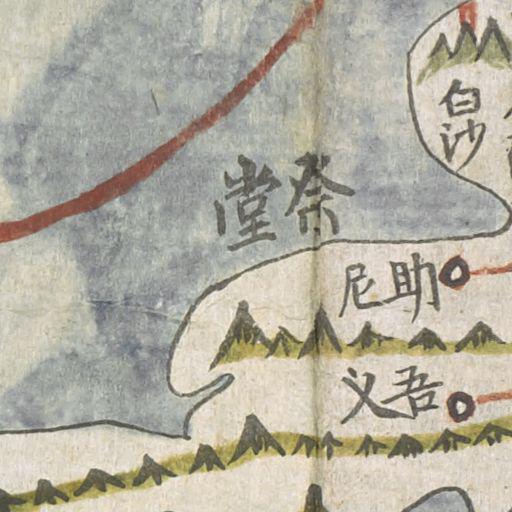 白沙
祭堂
助尼
吾义